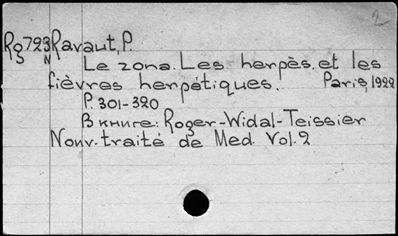 2
Rg723 Ravaut, P.
N
Le zona. Les herpès et les
fièvres herpétiques. Paris, 1922
P. 301-320
В книге: Roger-Widal-Teissier
Nouv. traité de Med. Vol. 2